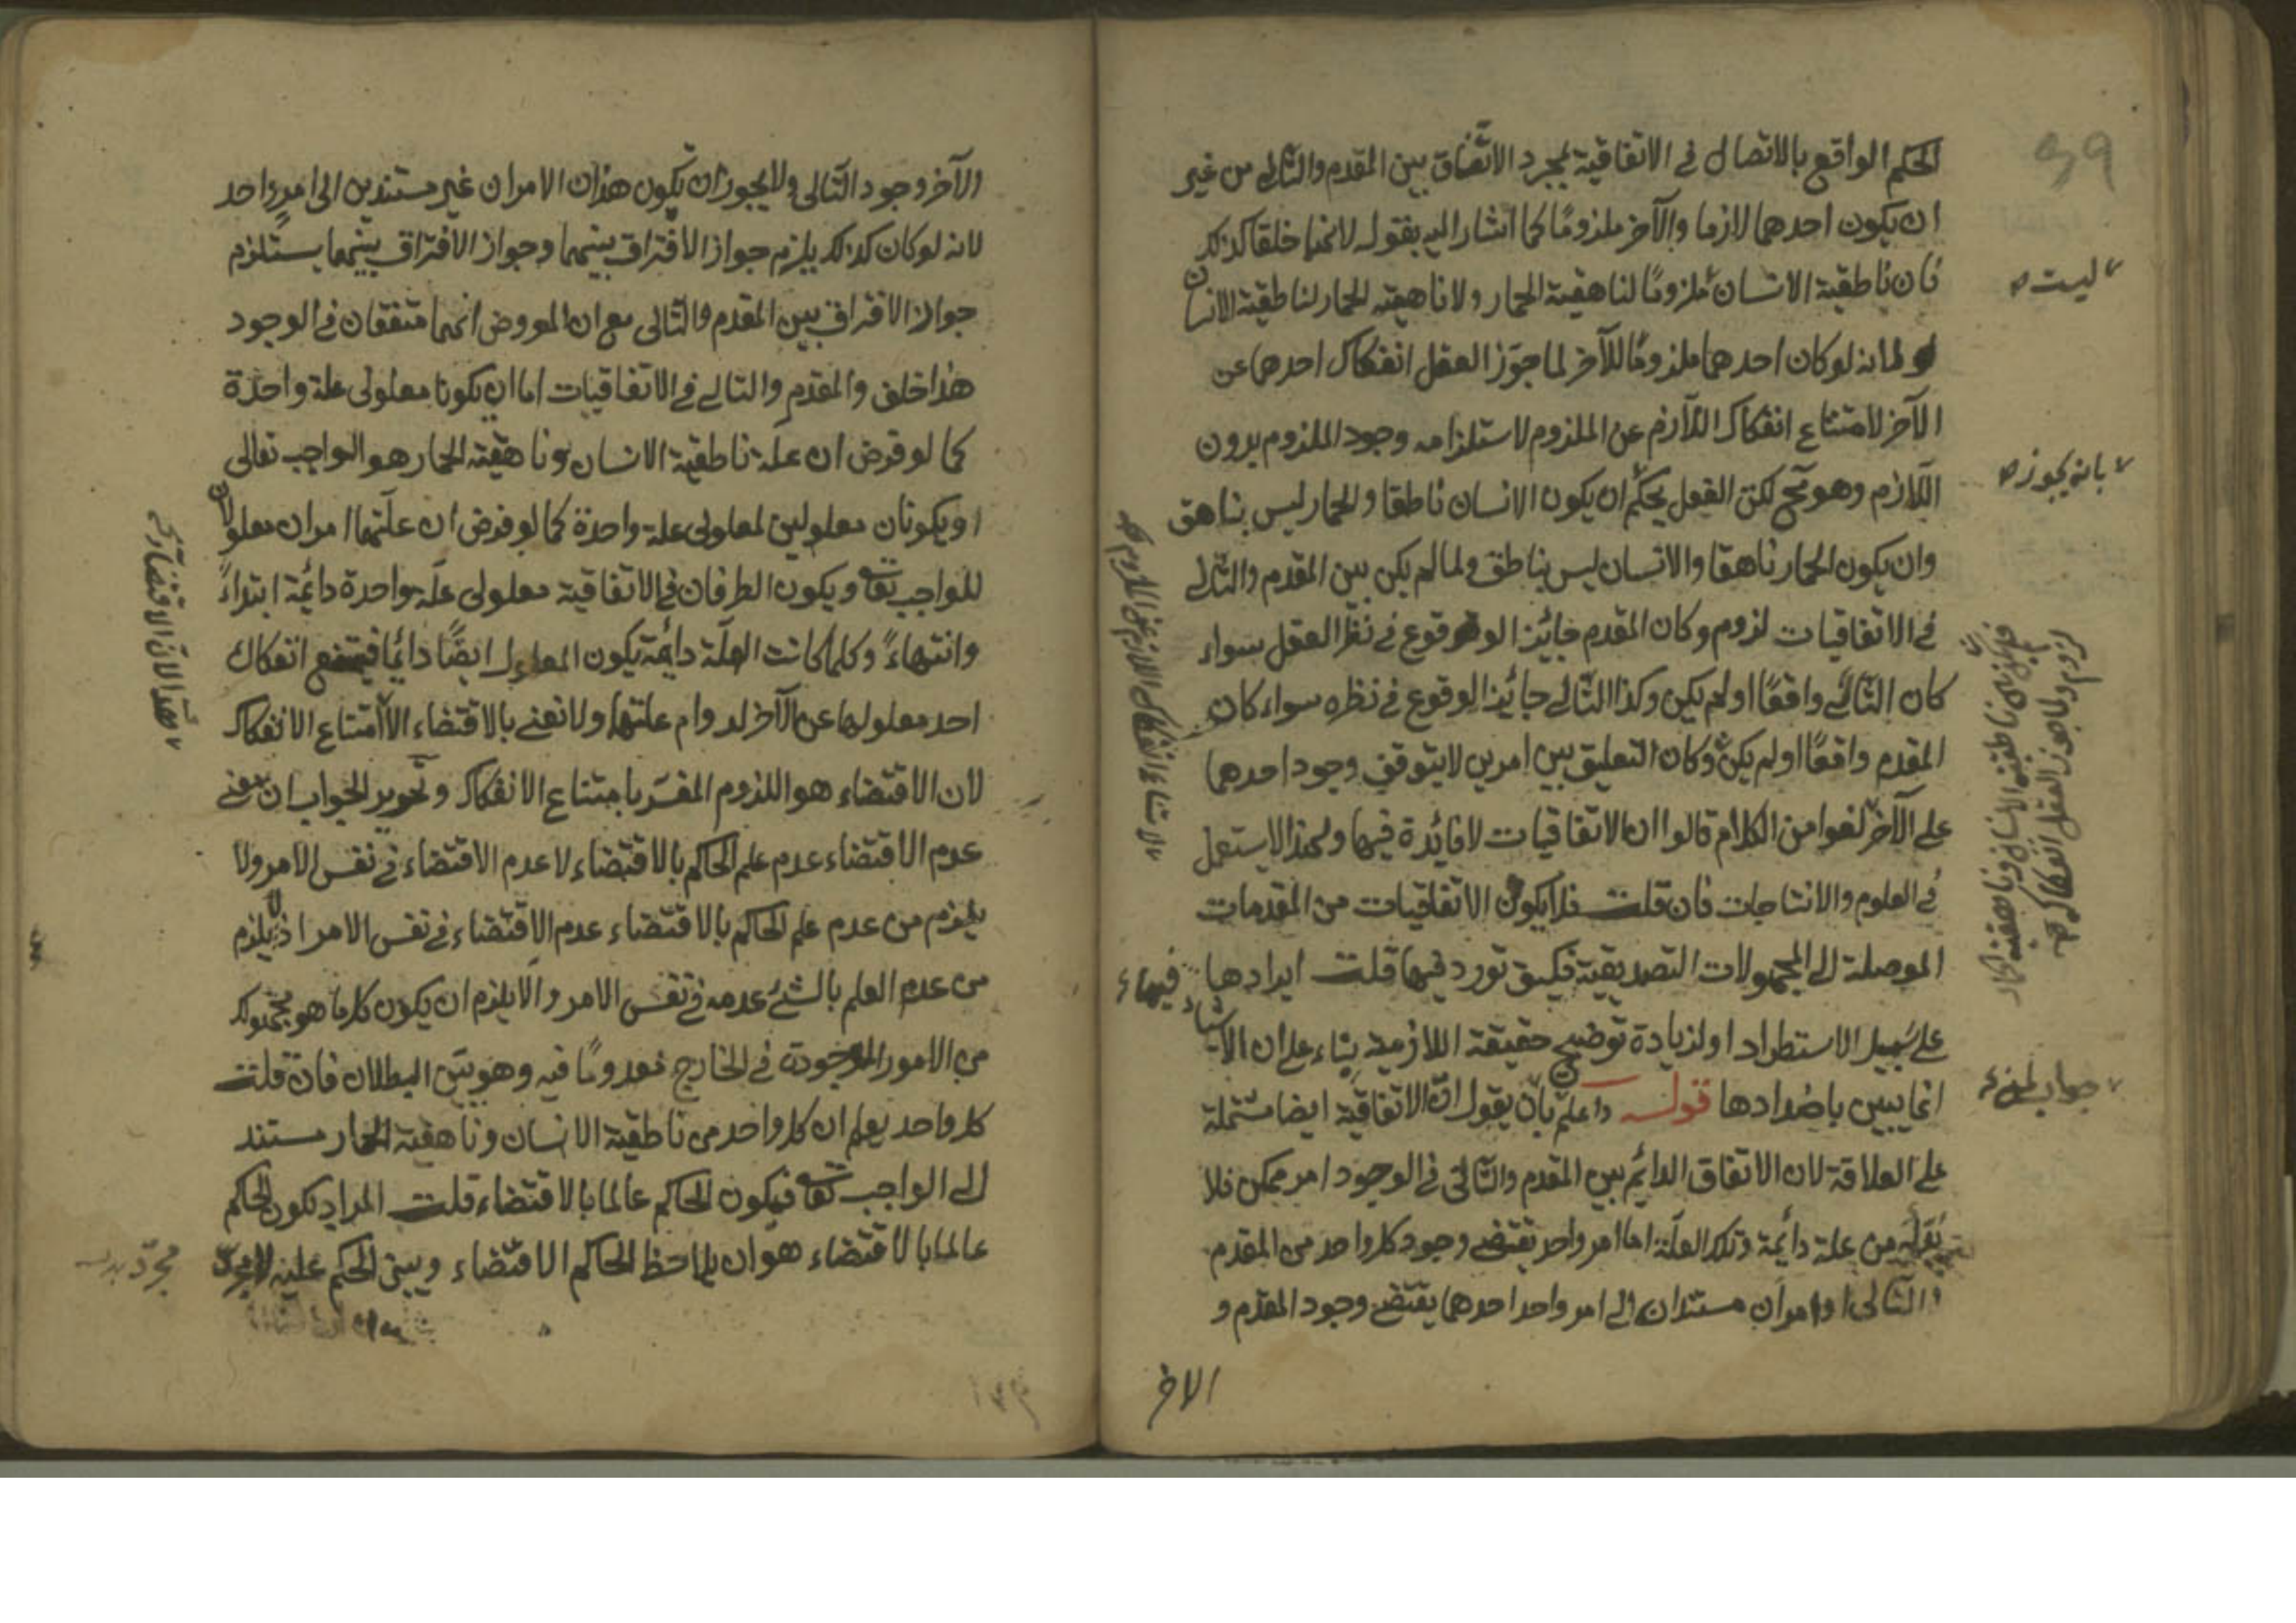 الحكم الواقع بالاتصال في الاتفاقية لمجرد الاتفاق بين المقدم والتالي من غير
ان يكون احدهما لازما والآخر ملزومًا كما اشار اليه بقوله لانهما خلقا كذلك
فان ناطقية الانسان ملزومًا لناهقية الحمار ولا ناهقية الحمار لناطقية الانسان
ولانه لو كان احدهما ملزومًا للآخر لما جوّز العقل انفكاك احدهما عن
الآخر لامتناع انفكاك اللازم عن الملزوم لاستلزامه وجود الملزوم بدون
اللازم وهو مح لكن العقل يحكم ان يكون الانسان ناطقا والحمار ليس بناهق
وان يكون الحمار ناهقا والانسان ليس بناطق ولما لم يكن بين المقدم والتالي
في الاتفاقيات لزوم وكان المقدم جائز الوقوع في نظر العقل سواء
كان التالي واقعًا او لم يكن وكذا التالي جائز الوقوع في نظره سواء كان
المقدم واقعًا او لم يكن وكان التعليق بين امرين لا يتوقف وجود احدهما
على الآخر لغوا من الكلام قالوا ان الاتفاقيات لا فائدة فيها ولهذا لا يستعمل
في العلوم والانتاجات فان قلت فلا يكون الاتفاقيات من المقدمات
الموصلة الى المجهولات التصديقية فكيف تورد فيها قلت ايرادها فيها
على سبيل الاستطراد او لزيادة توضيح حقيقة اللازمية بناء على ان الاشياء
انما يبين باضدادها قوله واعلم بان يقول ان الاتفاقية ايضا مشتملة
على العلاقة لان الاتفاق الدائم بين المقدم والتالي في الوجود امر ممكن فلا
بد له من علة دائمة وتلك العلة اما امر واحد يقتضي وجود كل واحد من المقدم
والتالي او امران مستندان الى امر واحد احدهما يقتضي وجود المقدم و
الاخر
ليست
بانه يجوز
لامتناع انفكاك اللازم عن الملزوم
الآخر وجود التالي ولا يجوز ان يكون هذان الامران غير مستندين الى امر واحد
لانه لو كان كذلك يلزم جواز الافتراق بينهما وجواز الافتراق بينهما يستلزم
جواز الافتراق بين المقدم والتالي مع ان المفروض انهما متفقان في الوجود
هذا خلف والمقدم والتالي في الاتفاقيات اما ان يكونا معلولي علة واحدة
كما لو فرض ان علة ناطقية الانسان وناهقية الحمار هو الواجب تعالى
او يكونان معلولين لمعلولي علة واحدة كما لو فرض ان علتهما امران معلولان
للواجب تعا ويكون الطرفان في الاتفاقية معلولي علة واحدة دائمة ابتداءً
وانتهاءً وكلما كانت العلة دائمة يكون المعلول ايضًا دائما فيمتنع انفكاك
احد معلولهما عن الآخر لدوام علتهما ولا نعني بالاقتضاء الا امتناع الانفكاك
لان الاقتضاء هو اللزوم المفسّر بامتناع الانفكاك وتحرير الجواب ان معنى
عدم الاقتضاء عدم علم الحاكم بالاقتضاء لا عدم الاقتضاء في نفس الامر ولا
يلزم من عدم علم الحاكم بالاقتضاء عدم الاقتضاء في نفس الامر اذ لا يلزم
من عدم العلم بالشئ عدمه في نفس الامر والا يلزم ان يكون كل ما هو مجهول لك
من الامور الموجودة في الخارج معدومًا فيه وهو بيّن البطلان فان قلت
كل واحد يعلم ان كل واحد من ناطقية الانسان وناهقية الحمار مستند
الى الواجب تعا فيكون الحاكم عالما بالاقتضاء قلت المراد بكون الحاكم
عالما بالاقتضاء هو ان يلاحظ الحاكم الاقتضاء ويبني الحكم عليه